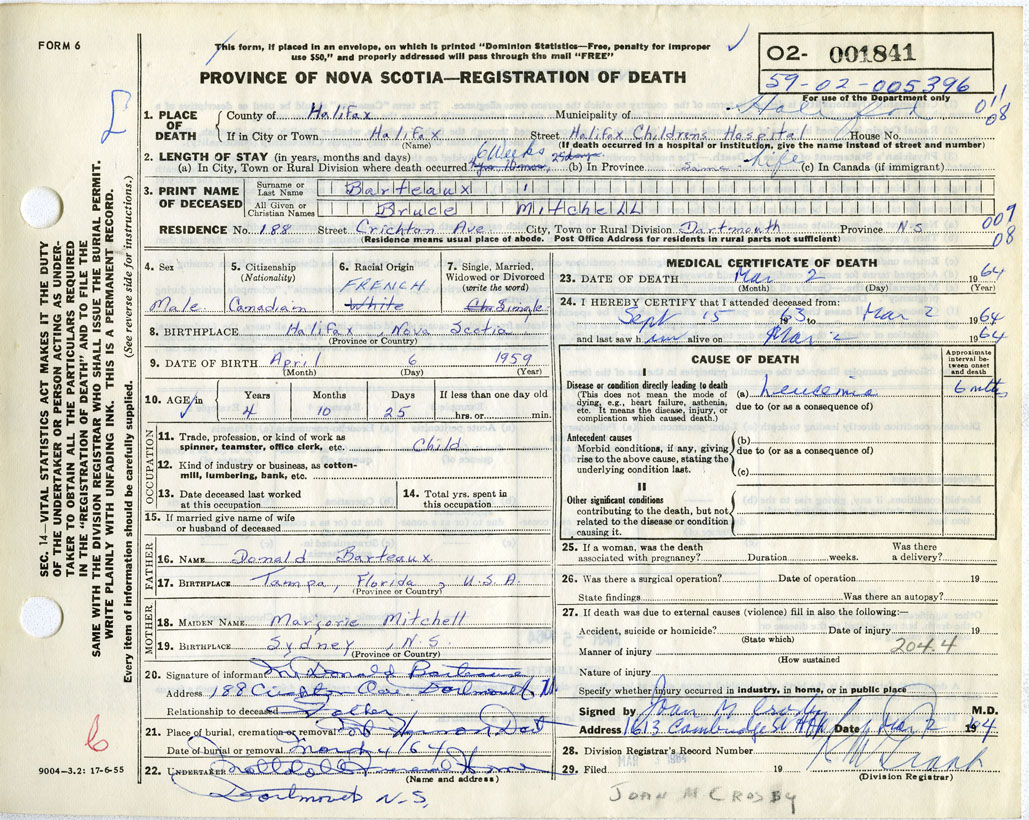 FORM 6
This form, if placed in an envelope, on which is printed "Dominion Statistics—Free, penalty for improper
use $50," and properly addressed will pass through the mail "FREE"
02- 001841
59-02-005396
For use of the Department only
PROVINCE OF NOVA SCOTIA—REGISTRATION OF DEATH
SEC. 14—VITAL STATISTICS ACT MAKES IT THE DUTY
OF THE UNDERTAKER OR PERSON ACTING AS UNDER-
TAKER TO OBTAIN ALL THE PARTICULARS REQUIRED
IN THE "REGISTRATION OF DEATH" AND TO FILE THE
SAME WITH THE DIVISION REGISTRAR WHO SHALL ISSUE THE BURIAL PERMIT.
WRITE PLAINLY WITH UNFADING INK. THIS IS A PERMANENT RECORD.
Every item of information should be carefully supplied. (See reverse side for instructions.)
1. PLACE OF DEATH County of Halifax Municipality of 011 08
If in City or Town Halifax Street Halifax Childrens Hospital House No.
(Name) (If death occurred in a hospital or institution, give the name instead of street and number)
2. LENGTH OF STAY (in years, months and days) 6 Weeks
(a) In City, Town or Rural Division where death occurred 25 days (b) In Province Same life (c) In Canada (if immigrant)
3. PRINT NAME OF DECEASED Surname or Last Name Barteaux
All Given or Christian Names Bruce Mitchell
RESIDENCE No. 188 Street Crichton Ave City, Town or Rural Division Dartmouth Province N.S. 009 08
(Residence means usual place of abode. Post Office Address for residents in rural parts not sufficient)
4. Sex Male
5. Citizenship (Nationality) Canadian
6. Racial Origin FRENCH White
7. Single, Married, Widowed or Divorced (write the word) Single
8. BIRTHPLACE Halifax, Nova Scotia
(Province or Country)
9. DATE OF BIRTH April 6 1959
(Month) (Day) (Year)
10. AGE in Years 4 Months 10 Days 25 If less than one day old hrs. or min.
OCCUPATION
11. Trade, profession, or kind of work as spinner, teamster, office clerk, etc. Child
12. Kind of industry or business, as cotton-mill, lumbering, bank, etc.
13. Date deceased last worked at this occupation
14. Total yrs. spent in this occupation
15. If married give name of wife or husband of deceased
FATHER
16. NAME Donald Barteaux
17. BIRTHPLACE Tampa, Florida, U.S.A.
(Province or Country)
MOTHER
18. MAIDEN NAME Marjorie Mitchell
19. BIRTHPLACE Sydney, N.S.
(Province or Country)
20. Signature of informant Donald Barteaux
Address 188 Dartmouth
Relationship to deceased Father
21. Place of burial, cremation or removal
Date of burial or removal March 4/64
22. UNDERTAKER Funeral Home
(Name and address)
Dartmouth N.S.
MEDICAL CERTIFICATE OF DEATH
23. DATE OF DEATH Mar 2 1964
(Month) (Day) (Year)
24. I HEREBY CERTIFY that I attended deceased from:
Sept 15 63 to Mar 2 1964
and last saw him alive on Mar 2 1964
CAUSE OF DEATH
Approximate interval between onset and death
I
Disease or condition directly leading to death
(This does not mean the mode of dying, e.g., heart failure, asthenia, etc. It means the disease, injury, or complication which caused death.)
(a) Leucemia 6 mths
due to (or as a consequence of)
Antecedent causes
Morbid conditions, if any, giving rise to the above cause, stating the underlying condition last.
(b)
due to (or as a consequence of)
(c)
II
Other significant conditions
contributing to the death, but not related to the disease or condition causing it.
25. If a woman, was the death associated with pregnancy? Duration weeks. Was there a delivery?
26. Was there a surgical operation? Date of operation 19
State findings Was there an autopsy?
27. If death was due to external causes (violence) fill in also the following:—
Accident, suicide or homicide? Date of injury 19
(State which)
204.4
Manner of injury
(How sustained
Nature of injury
Specify whether injury occurred in industry, in home, or in public place
Signed by Joan M Crosby M.D.
Address 1613 Cambridge St Date Mar 2 1964
28. Division Registrar's Record Number
29. Filed 19
(Division Registrar)
9004-3.2: 17-6-55
JOAN M CROSBY